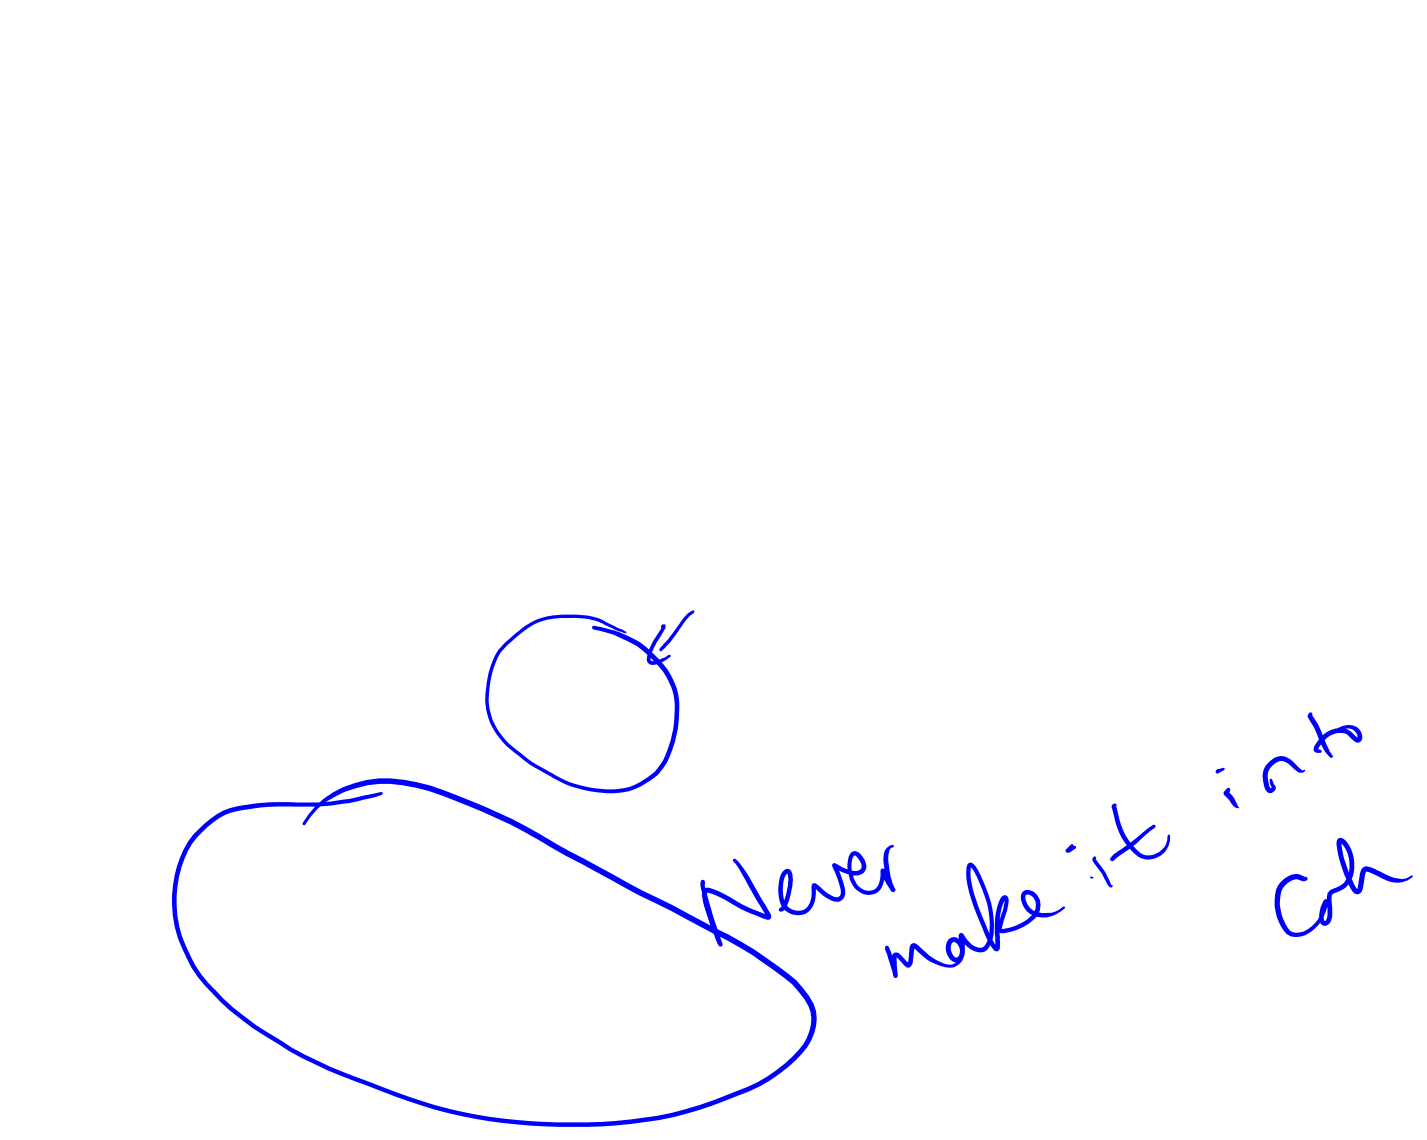 Never make it into